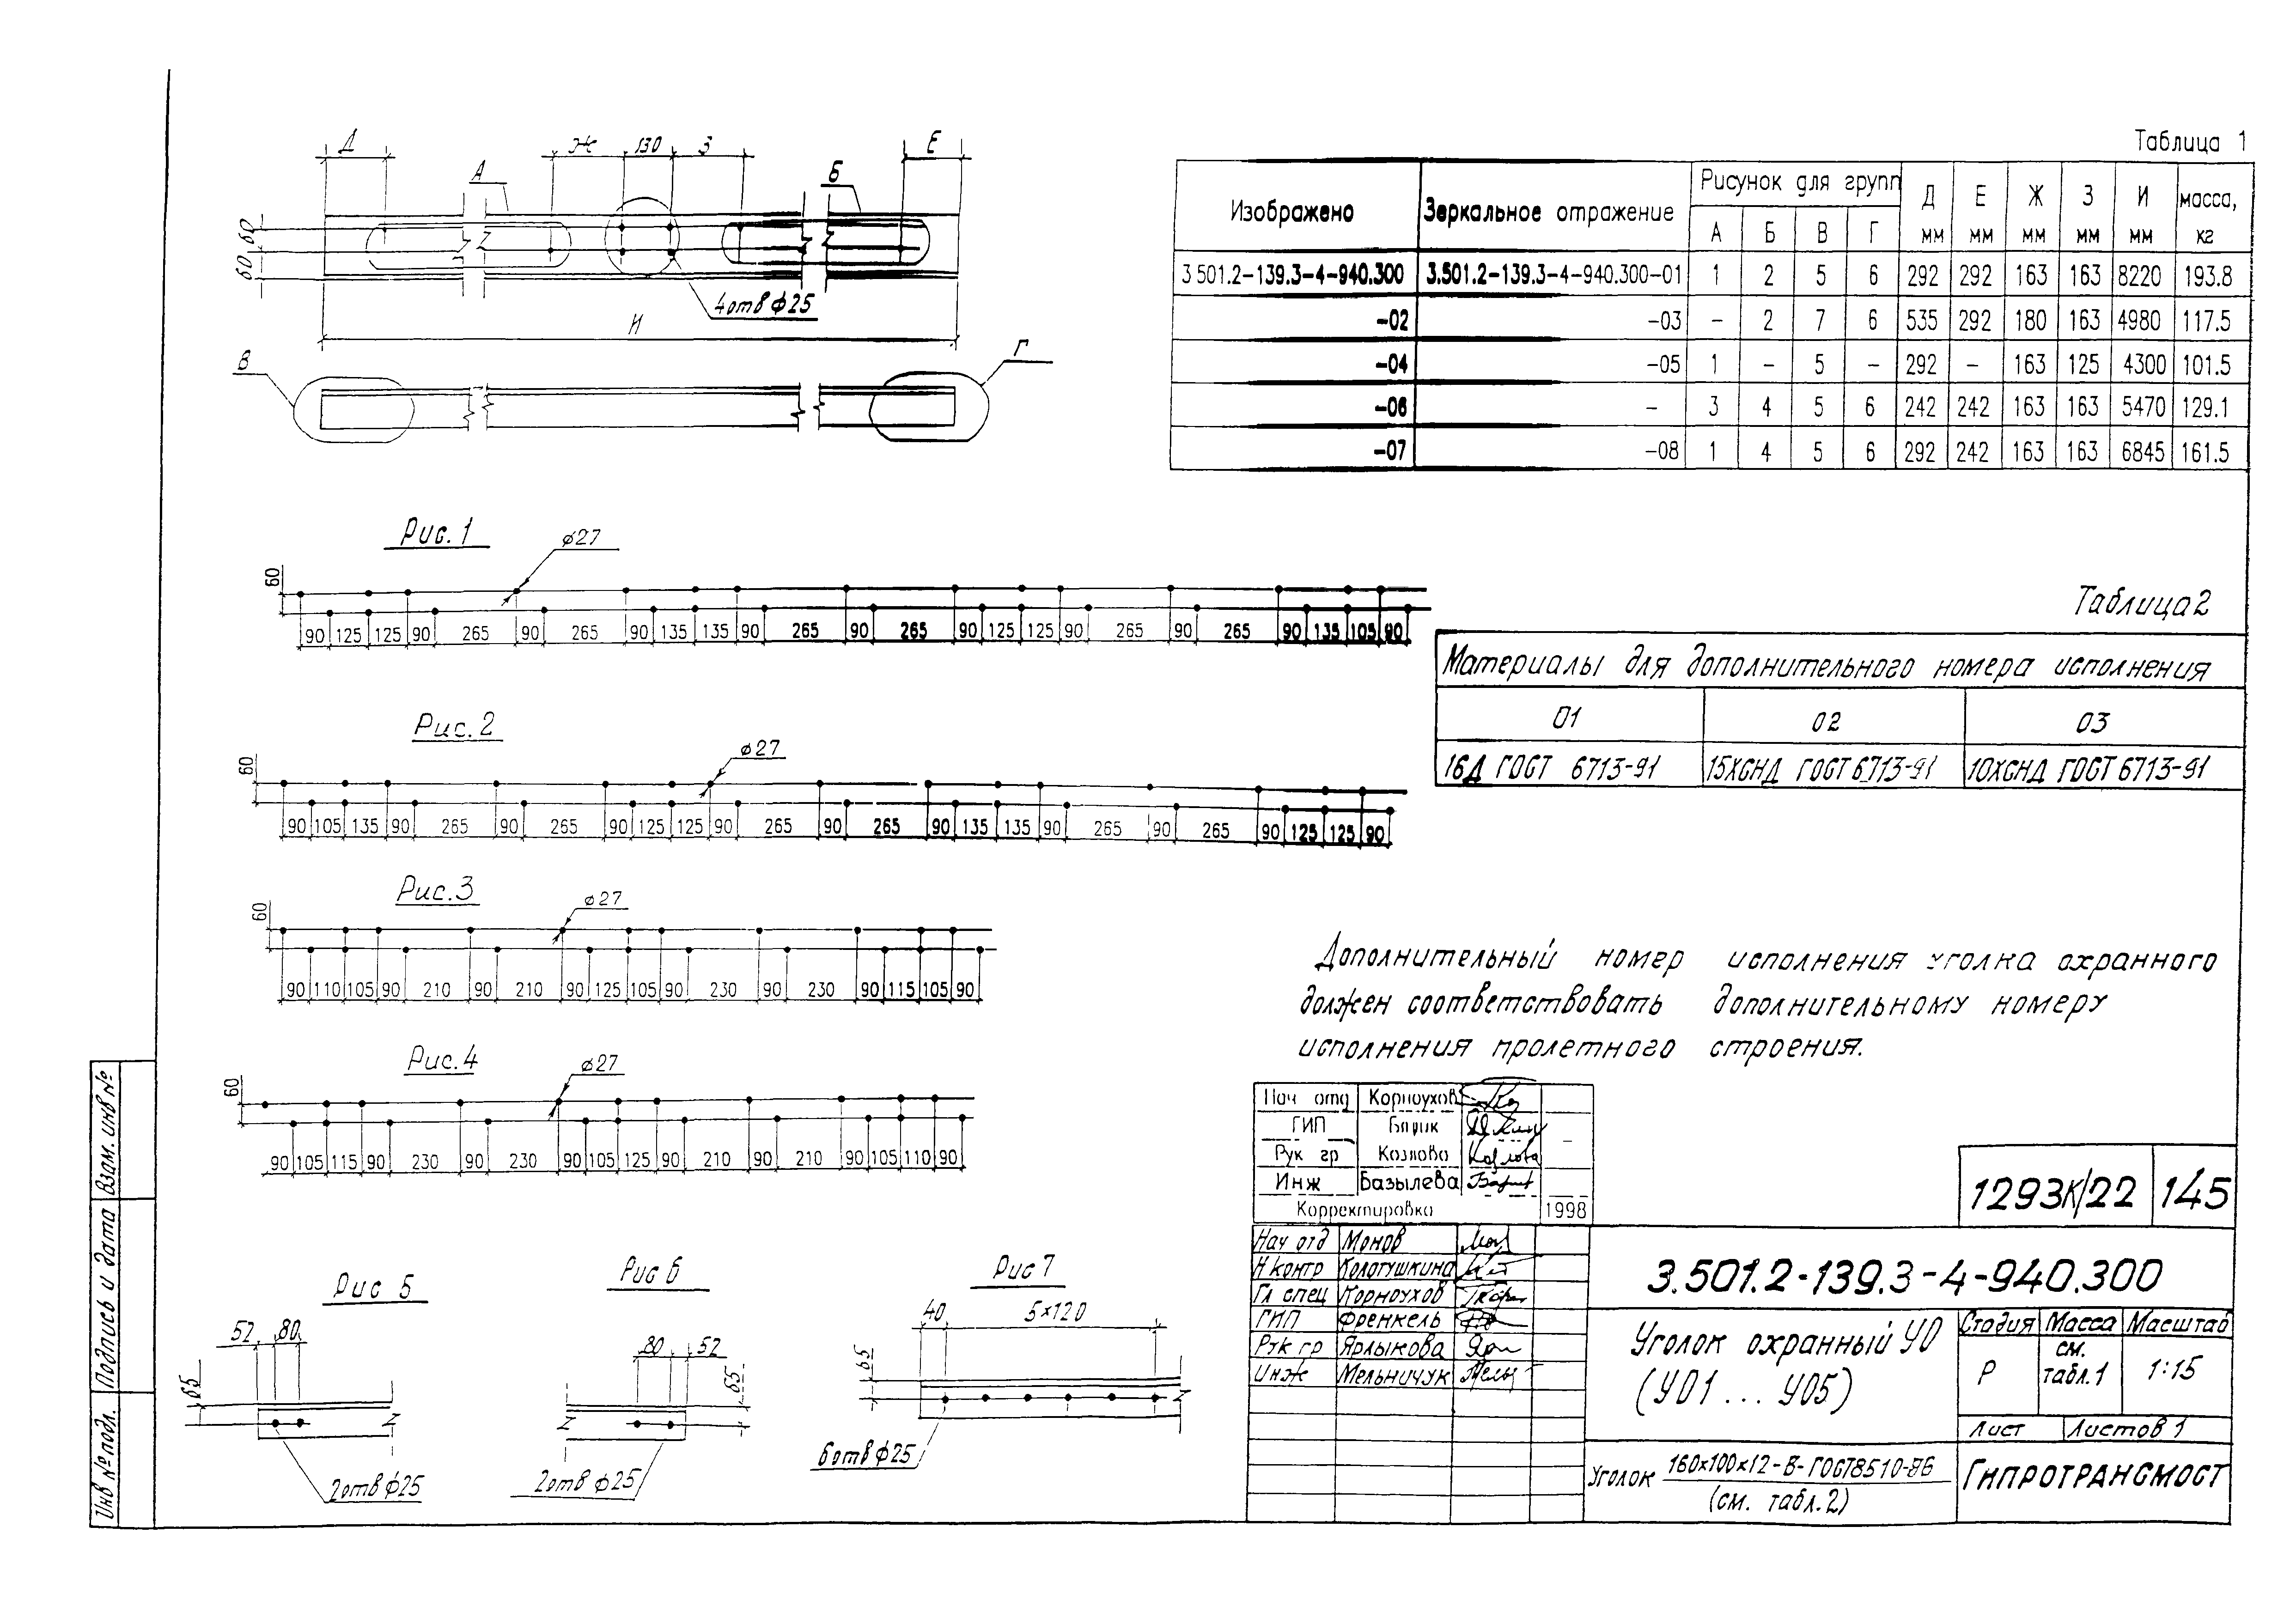 Д Ж 130 З Е
А Б
60
60
4 отв ф25
И
В Г
Таблица 1
Изображено Зеркальное отражение Рисунок для групп Д Е Ж З И масса,
А Б В Г мм мм мм мм мм кг
3 501.2-139.3-4-940.300 3.501.2-139.3-4-940.300-01 1 2 5 6 292 292 163 163 8220 193.8
-02 -03 - 2 7 6 535 292 180 163 4980 117.5
-04 -05 1 - 5 - 292 - 163 125 4300 101.5
-06 - 3 4 5 6 242 242 163 163 5470 129.1
-07 -08 1 4 5 6 292 242 163 163 6845 161.5
Рис. 1
ф27
60
90 125 125 90 265 90 265 90 135 135 90 265 90 265 90 125 125 90 265 90 265 90 135 105 90
Рис. 2
ф27
60
90 105 135 90 265 90 265 90 125 125 90 265 90 265 90 135 135 90 265 90 265 90 125 125 90
Рис. 3
ф27
60
90 110 105 90 210 90 210 90 125 105 90 230 90 230 90 115 105 90
Рис. 4
ф27
60
90 105 115 90 230 90 230 90 105 125 90 210 90 210 90 105 110 90
Рис 5
52 80
65
2 отв ф25
Рис 6
80 52
65
2 отв ф25
Рис 7
40 5×120
65
6 отв ф25
Таблица 2
Материалы для дополнительного номера исполнения
01 02 03
16Д ГОСТ 6713-91 15ХСНД ГОСТ 6713-91 10ХСНД ГОСТ 6713-91
Дополнительный номер исполнения уголка охранного
должен соответствовать дополнительному номеру
исполнения пролетного строения.
Нач отд Корноухов
ГИП
Рук гр Козлова
Инж Базылева
Корректировка 1998
Нач отд Монов
Н контр Кологушкина
Гл спец Корноухов
ГИП Френкель
Рук гр Ярлыкова
Инж Мельничук
1293К/22 145
3.501.2-139.3-4-940.300
Уголок охранный УО
(УО1 ... УО5)
Стадия Масса Масштаб
Р см. табл. 1 1:15
Лист Листов 1
Уголок 160×100×12-В-ГОСТ8510-86
(см. табл. 2)
ГИПРОТРАНСМОСТ
Взам. инв №
Подпись и дата
Инв № подл.